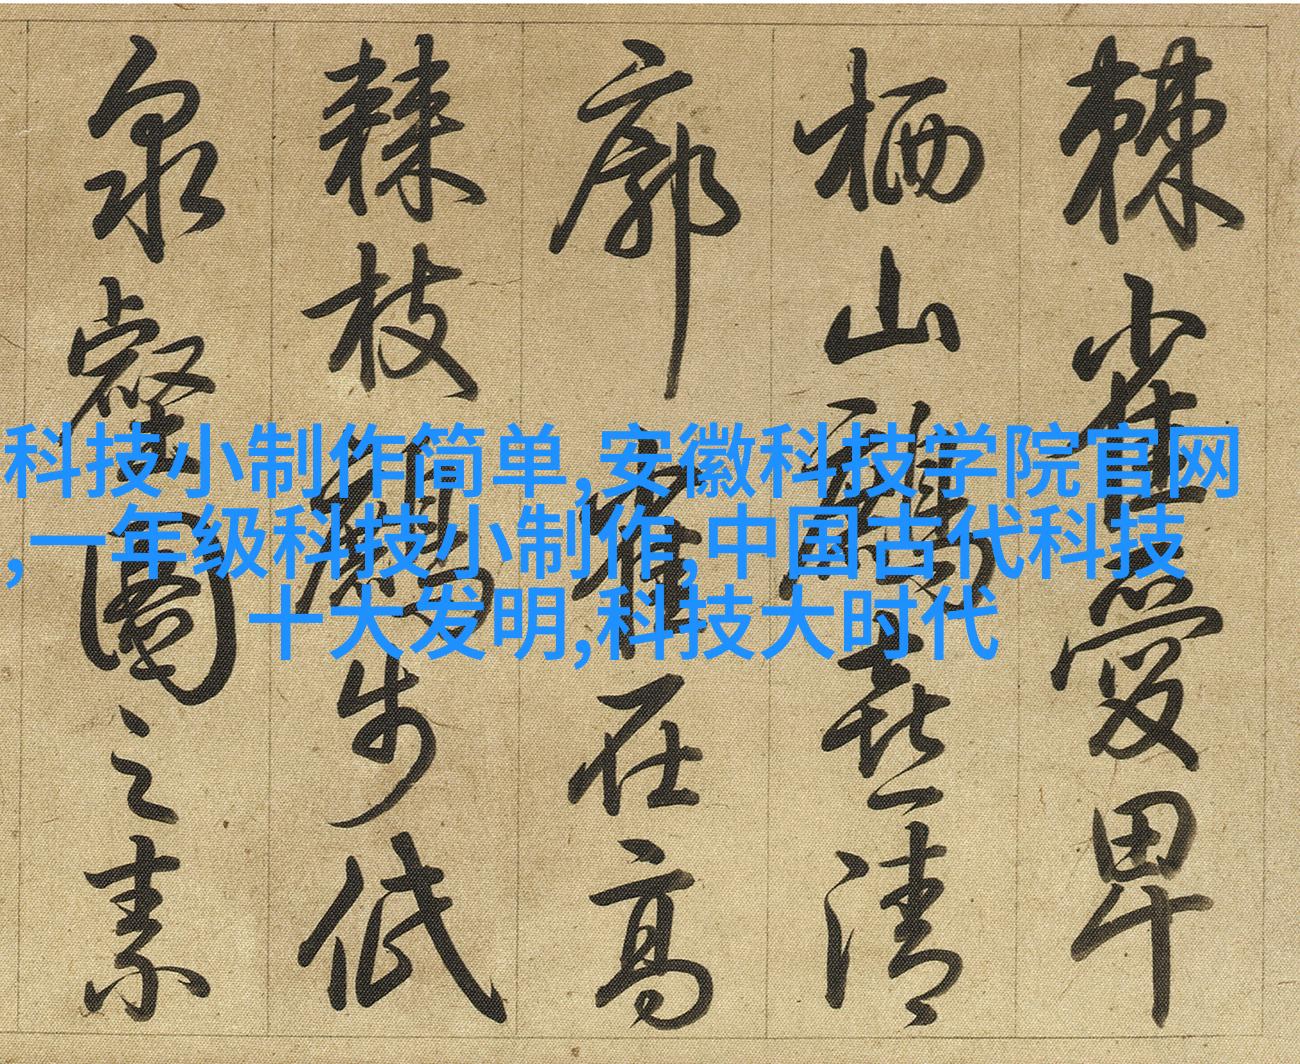 棘雀愛卑
栖山喜清
廓雀在高
棘枝步低
泉壑園之素
科技小制作简单,安徽科技学院官网
,一年级科技小制作,中国古代科技
十大发明,科技大时代